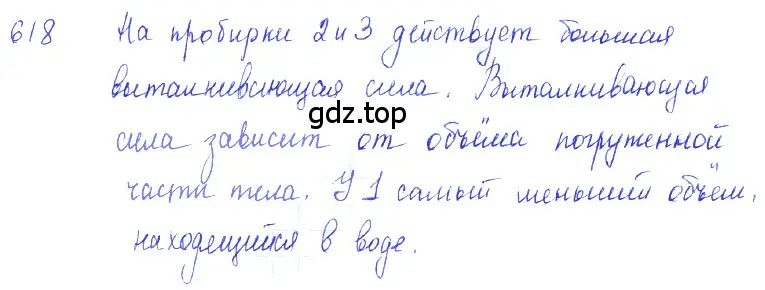 618 На пробирки 2 и 3 действует большая
выталкивающая сила. Выталкивающая
gdz.top
сила зависит от объёма погруженной
части тела. У 1 самый меньший объём,
находящийся в воде.